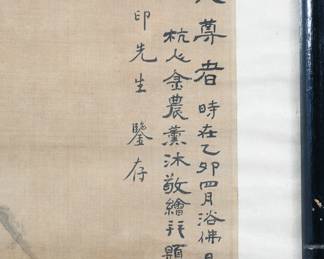 尊者 時在乙卯四月浴佛日
杭人金農薰沐敬繪拜題
印先生鑒存